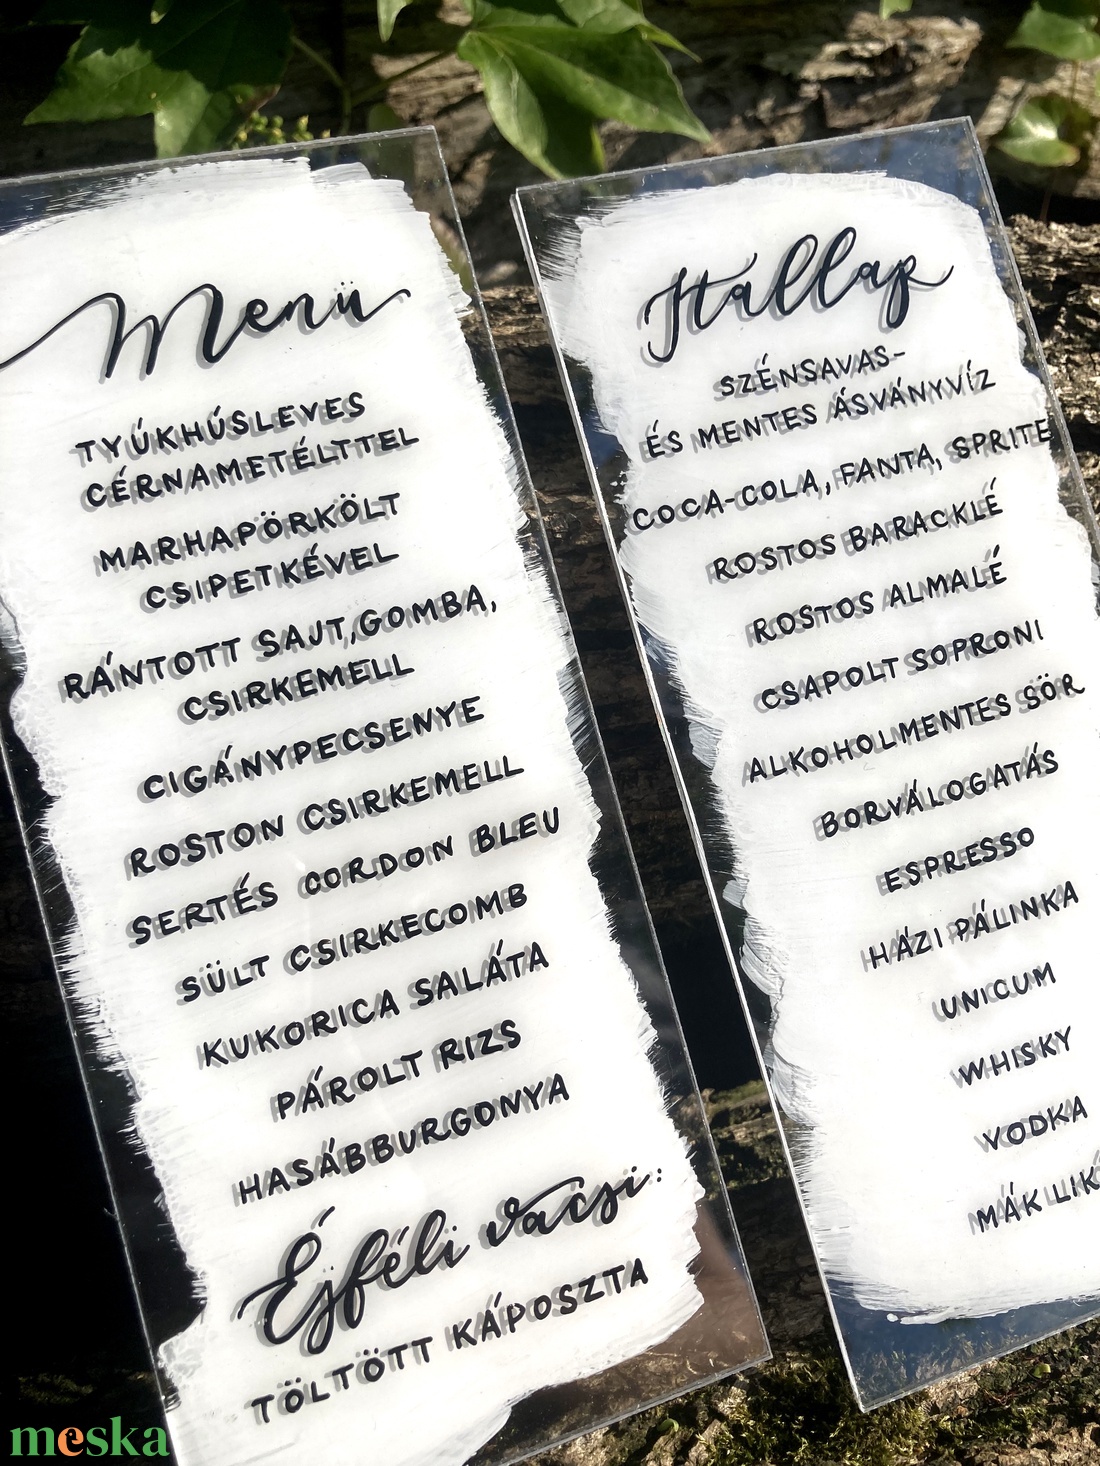 Menü
TYÚKHÚSLEVES
CÉRNAMETÉLTTEL
MARHAPÖRKÖLT
CSIPETKÉVEL
RÁNTOTT SAJT, GOMBA,
CSIRKEMELL
CIGÁNYPECSENYE
ROSTON CSIRKEMELL
SERTÉS CORDON BLEU
SÜLT CSIRKECOMB
KUKORICA SALÁTA
PÁROLT RIZS
HASÁBBURGONYA
Éjféli vacsi:
TÖLTÖTT KÁPOSZTA
Itallap
SZÉNSAVAS-
ÉS MENTES ÁSVÁNYVÍZ
COCA-COLA, FANTA, SPRITE
ROSTOS BARACKLÉ
ROSTOS ALMALÉ
CSAPOLT SOPRONI
ALKOHOLMENTES SÖR
BORVÁLOGATÁS
ESPRESSO
HÁZI PÁLINKA
UNICUM
WHISKY
VODKA
MÁK LIK
meska